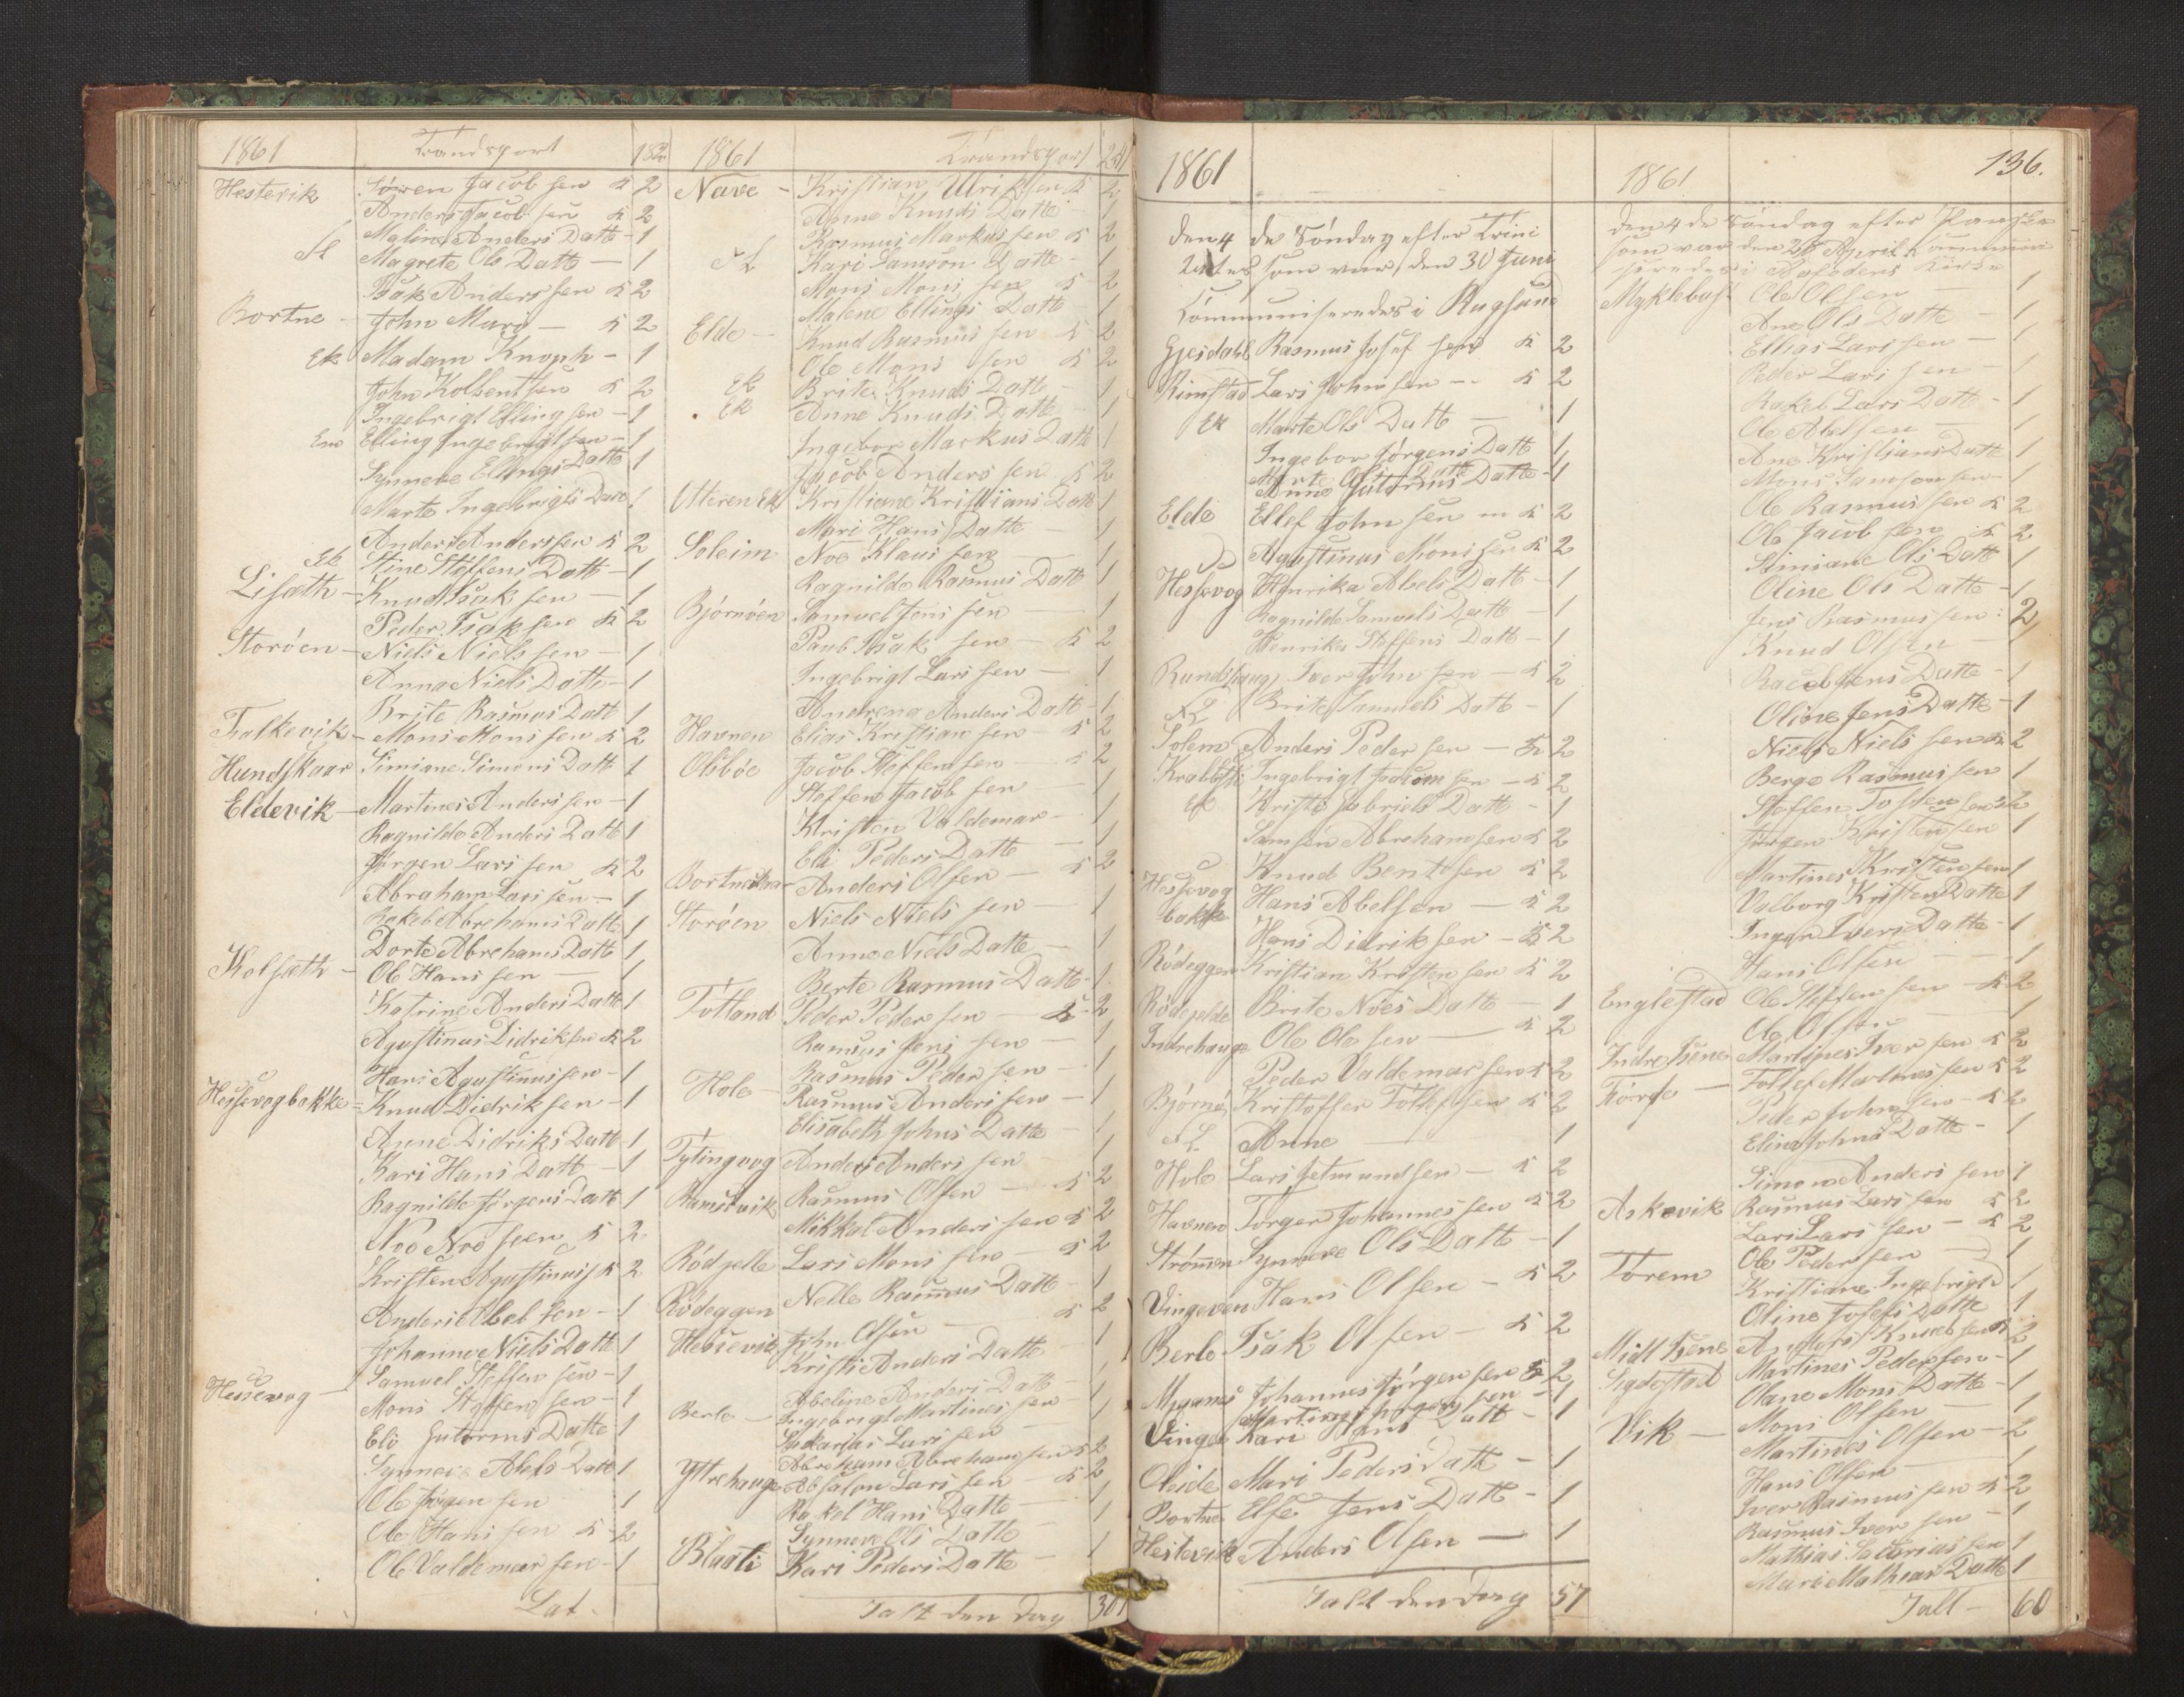 1861 Trandsport 182
Hestevik Søren Jacob sen K 2
Anders Jacob sen K 2
Malina Anders Datt - 1
Magrete Ols Datt - 1
Isak Anders sen K 2
Bortne - John Mará - K 2
Ek Madam Knoph - 1
John Kolbent sen K 2
Ingebrigt Elling sen - 1
Elling Ingebrigt sen - 1
Synneve Ellings Datt 1
Marte Ingebrigts Datt 1
Anders Anders sen K 2
Ek Stine Steffens Datt - 1
Lisæth - Knud Isak sen - 1
Peder Isak sen K 2
Storöen - Niels Niels sen - 1
Anna Niels Datt - 1
Brite Rasmus Datt 1
Falkevik - Mons Mons sen K 2
Hundskaar Simiane Simons Datt 1
Eldevik - Martines Anders sen - 1
Ragnilde Anders Datt 1
Jørgen Lars sen K 2
Abraham Lars sen - 1
Rakel Abrehams Datt 1
Dorte Abrehams Datt 1
Kolsæth - Ole Hans sen - 1
Katrine Anders Datt 1
Agustinus Didrik sen K 2
Hans Agustinus sen - 1
Hessevogbakke - Knud Didrik sen - 1
Anne Didriks Datt - 1
Kari Hans Datt - 1
Ragnilde Jørgens Datt 1
Noe Noe sen K 2
Kristen Agustinus K 2
Anders Abel sen - 1
Johanne Niels Datt 1
Samuel Steffen sen - 1
Hessevog - Mons Steffen sen - 1
Eli Gutorms Datte 1
Synneve Abels Datt 1
Ole Jørgen sen 1
Ole Hans sen K 2
Ole Valdemar sen - 1
Lat.
1861 Trandsport
Nave - Kristian Ulrik sen K 2
Anne Knuds Datte 1
Rasmus Markus sen K 2
Kari Samson Datte - 1
Mons Mons sen K 2
Malene Ellings Datt 1
Elde - Knud Rasmus sen K 2
Ole Mons sen K 2
Ek Brite Knuds Datt 1
Ek Anne Knuds Datt 1
Ingebor Markus Datt 1
Jacob Anders sen K 2
Utteren Ek Kristiane Kristians Datt 1
Mari Hans Datte 1
Soleim Noe Klaus sen 1
Ragnilde Rasmus Datt 1
Björnöen Samuel Jens sen 1
Paul Isak sen - K 2
Ingebrigt Lars sen - 1
Andrena Anders Datt 1
Havnen Elias Kristian sen - K 2
Olsböe Jacob Steffen sen K 2
Steffen Jacob sen 1
Kristen Valdemar - 1
Eli Peders Datte 1
Anders Olsen - K 2
Storöen Niels Niels sen - 1
Anne Niels Datte - 1
Berte Rasmus Datte - 1
Totland Peder Peder sen - K 2
Rasmus Jens sen - 1
Rasmus Peder sen - 1
Hole Rasmus Anders sen - 1
Elisabeth Johns Datte 1
Tytingvog Anders Anders sen 1
Ramsevik Rasmus Olsen - K 2
Mikkal Anders sen K 2
Rödjelle Lars Mons sen - K 2
Rödeggen Nelle Rasmus Datt 1
Hessevik John Olsen - K 2
Kristi Anders Datte 1
Abeline Anders Datt 1
Berle - Ingebrigt Martines sen 1
Sakarias Lars sen
Abreham Abreham sen K 2
Yttrehauge Absalon Lars sen - K 2
Rakel Hans Datte 1
Synneve Ols Datte 1
Blaali Kari Peders Datte 1
Jalt den Dag 301
1861
Den 4 de Söndag efter Trini
tates som var den 30 Juni
kommuniseredes i Rugsund
Gjesdahl Rasmus Josef sen K 2
Rimstad Lars John sen - K 2
Ek Marte Ols Datt - 1
Ingebor Jørgens Datt 1
Anne Gutorms Datte - 1
Elde Ellef John sen K 2
Do Agustinus Mons sen K 2
Hessevog Henrika Abels Datt - 1
Ragnilde Samuels Datt - 1
Henrika Steffens Datt - 1
Rundehaug Iver John sen - K 2
Brite Samuels Datt - 1
Solem Anders Peder sen - K 2
Ingebrigt Joacom sen - K 2
Ek Kristi Gabriels Datt - 1
Samsen Abreham sen K 2
Knud Bent sen K 2
Hessevog
bakke Hans Abelsen - K 2
Hans Didrik sen - K 2
Rödeggen Kristian Kristen sen K 2
Rödejelde Brite Noes Datt - 1
Indrehauge Ole Ole sen - K 2
Peder Valdemar sen K 2
Björnö Kristoffer Tollef sen K 2
Anne - 1
Hole Lars Jetmund sen - K 2
Havnen Torger Johannes sen K 2
Strömen Synneve Ols Datt - 1
Vingeven Hans Olsen - K 2
Berle Isak Olsen - K 2
Johannes Jørgen sen K 2
Vinge Kari Hans Datt - 1
Oleide Mari Peders Datt - 1
Bortne Else Jens Datt - 1
Hestevik Anders Olsen - 1
Jalt den dag 57
1861 136.
Den 4 de Söndag efter Paaske
som var den 28 April kommuni
seredes i Kirke
Myklebust Ole Olsen - 1
Ane Ols Datte - 1
Ellias Lars sen - 1
Peder Lars sen - 1
Rakel Lars Datt - 1
Ole Abelsen 1
Ane Kristians Datt 1
Mons Samson sen - 1
Ole Rasmus sen K 2
Ole Jacob sen K 2
Siniane Ols Datt 1
Oline Ols Datte - 1
Jens Rasmus sen : 2
Knud Olsen
Racel Jens Datte - 1
Oline Jens Datte - 1
Niels Niels sen K 2
Berge Rasmus sen 1
Steffen Tosten sen K 2
Jörgen Kristen sen 1
Martines Kristen sen 1
Valborg Kristen Datte 1
Ingar Ivers Datte - 1
Hans Olsen - 1
Englestad Ole Steffen sen - K 2
Ole Olsen 1
Indre Isene Martines Iver sen K 2
Förde - Tollef Martines sen K 2
Peder John sen - K 2
Elina Johns Datte - 1
Simon Anders sen 1
Askevik Rasmus Lars sen K 2
Lars Lars sen - K 2
Torem Ole Peder sen - 1
Kristiane Ingebrigts 1
Oline Josefs Datte 1
Midt Isene Anders Knud sen K 2
Sigdestad Martines Peder sen - 1
Olane Mons Datte - 1
Vik - Mons Olsen - 1
Martines Olsen - 2
Hans Olsen - 1
Iver Rasmus sen K 2
Rasmus Iver sen - 1
Mathias Sacarias sen 1
Mari Mathias Datte 1
Jalt - 60